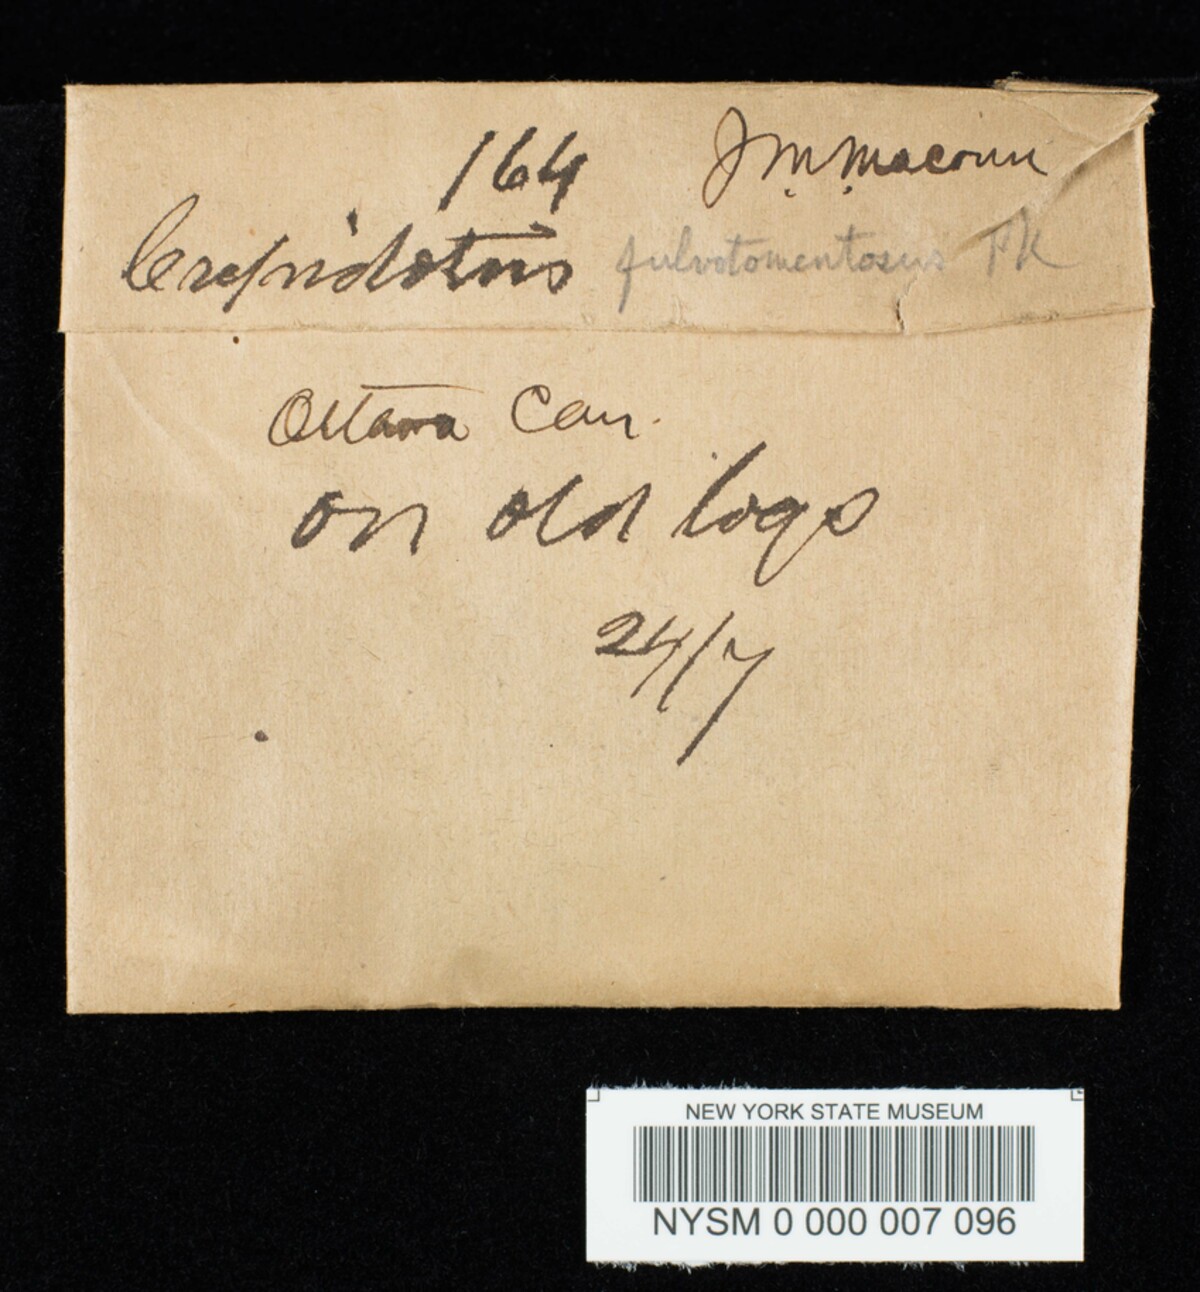 164 J. M. Macoun
Crepidotus fulvotomentosus PK
Ottawa Can.
on old logs
24/7
NEW YORK STATE MUSEUM
NYSM 0 000 007 096